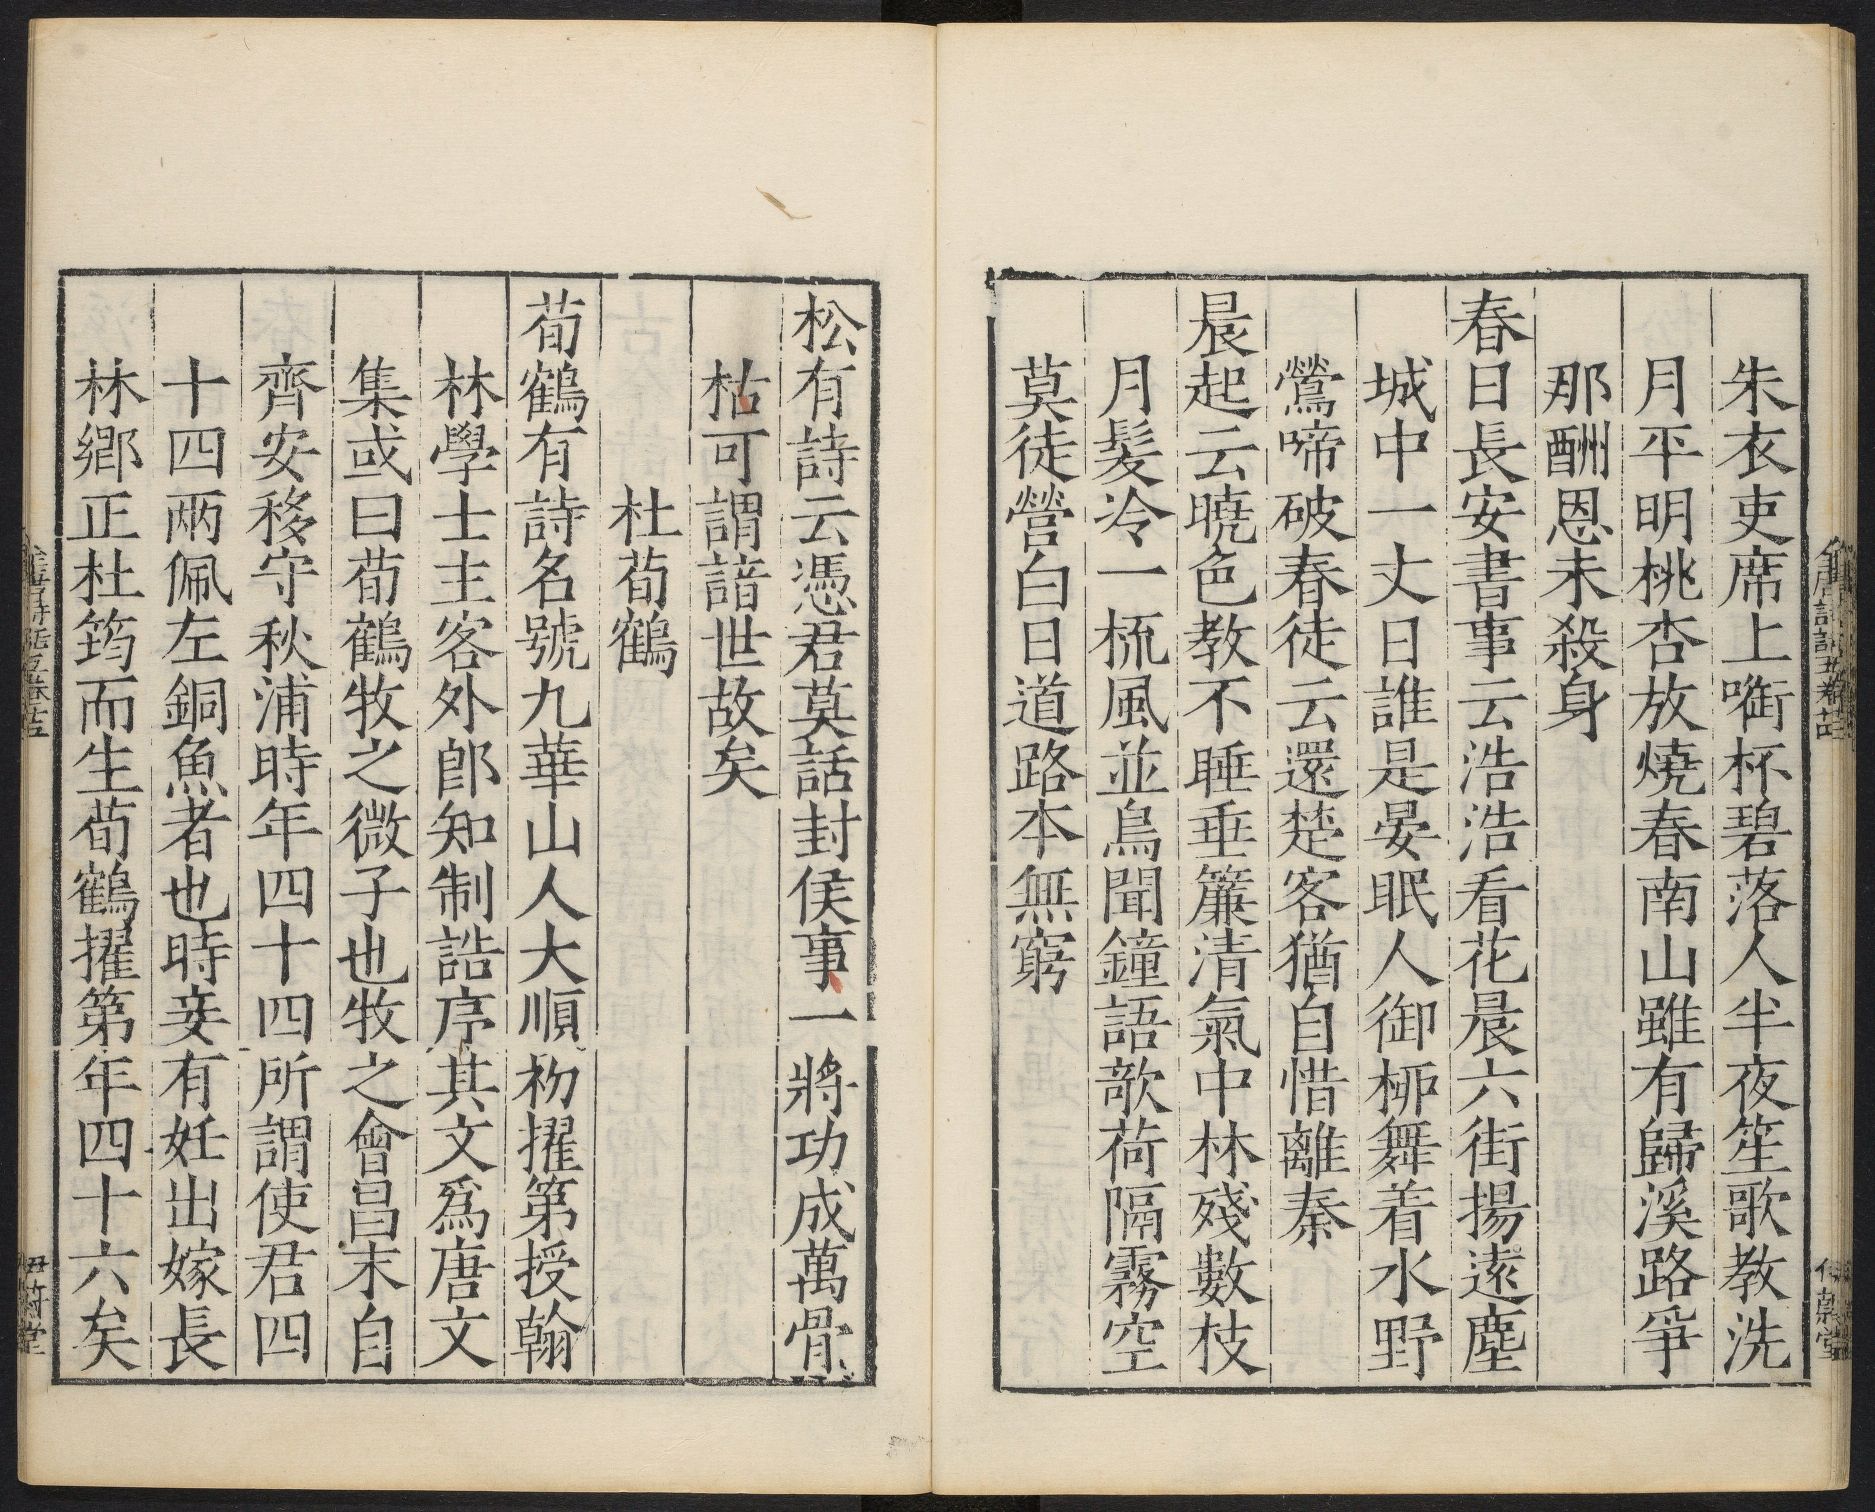 朱衣吏席上銜杯碧落人半夜笙歌教洗
月平明桃杏放燒春南山雖有歸溪路爭
那酬恩未殺身
春日長安書事云浩浩看花晨六街揚遠塵
城中一丈日誰是晏眠人御桺舞着水野
鶯啼破春徒云還楚客猶自惜離秦
晨起云曉色教不睡垂簾清氣中林殘數枝
月髪冷一梳風並鳥聞鐘語欹荷隔霧空
莫徒營白日道路本無窮
松有詩云憑君莫話封侯事一將功成萬骨
枯可謂諳世故矣
杜荀鶴
荀鶴有詩名號九華山人大順初擢第授翰
林學士主客外郎知制誥序其文爲唐文
集或曰荀鶴牧之微子也牧之會昌末自
齊安移守秋浦時年四十四所謂使君四
十四兩佩左銅魚者也時妾有妊出嫁長
林鄉正杜筠而生荀鶴擢第年四十六矣